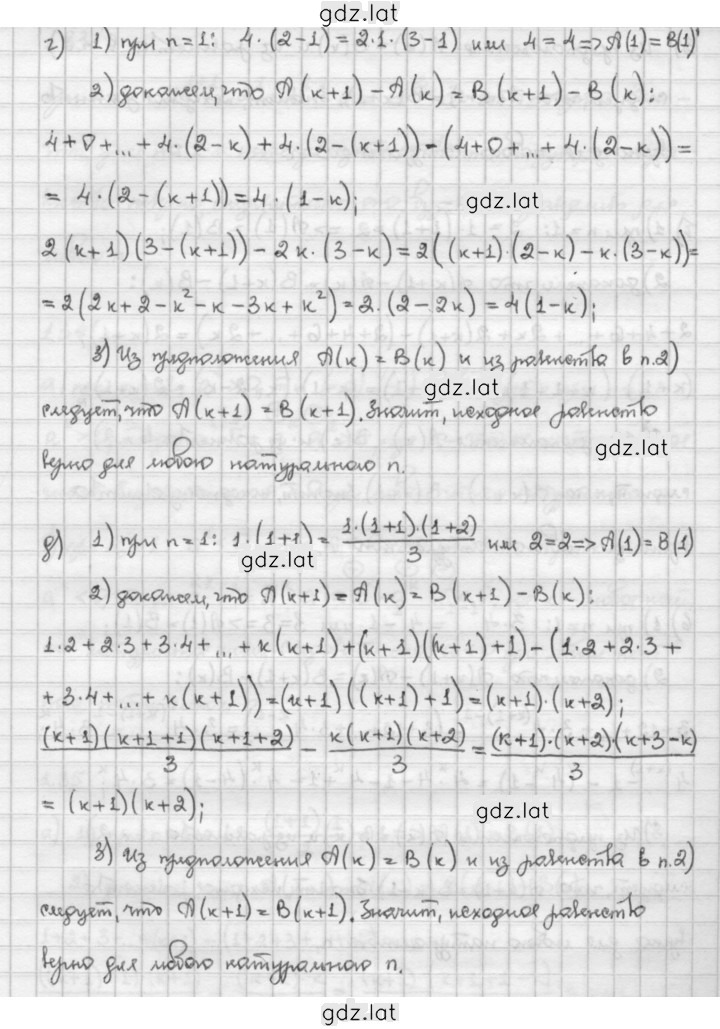 gdz.lat
г) 1) при n=1: 4·(2-1)=2·1·(3-1) или 4=4=>A(1)=B(1)
2) докажем, что A(к+1)-A(к)=B(к+1)-B(к):
4+0+...+4·(2-к)+4·(2-(к+1))-(4+0+...+4·(2-к))=
= 4·(2-(к+1))=4·(1-к);
gdz.lat
2(к+1)(3-(к+1))-2к·(3-к)=2((к+1)·(2-к)-к·(3-к))=
=2(2к+2-к²-к-3к+к²)=2·(2-2к)=4(1-к);
3) Из предположения A(к)=B(к) и из равенства в п.2)
gdz.lat
следует, что A(к+1)=B(к+1). Значит, исходное равенство
gdz.lat
верно для любого натурального n.
д) 1) при n=1: 1·(1+1)= \frac{1·(1+1)·(1+2)}{3} или 2=2=>A(1)=B(1)
gdz.lat
2) докажем, что A(к+1)-A(к)=B(к+1)-B(к):
1·2+2·3+3·4+...+к(к+1)+(к+1)((к+1)+1)-(1·2+2·3+
+3·4+...+к(к+1))=(к+1)((к+1)+1)=(к+1)·(к+2);
\frac{(к+1)(к+1+1)(к+1+2)}{3} - \frac{к(к+1)(к+2)}{3} = \frac{(к+1)·(к+2)·(к+3-к)}{3}
= (к+1)(к+2);
gdz.lat
3) Из предположения A(к)=B(к) и из равенства в п.2)
следует, что A(к+1)=B(к+1). Значит, исходное равенство
верно для любого натурального n.
gdz.lat